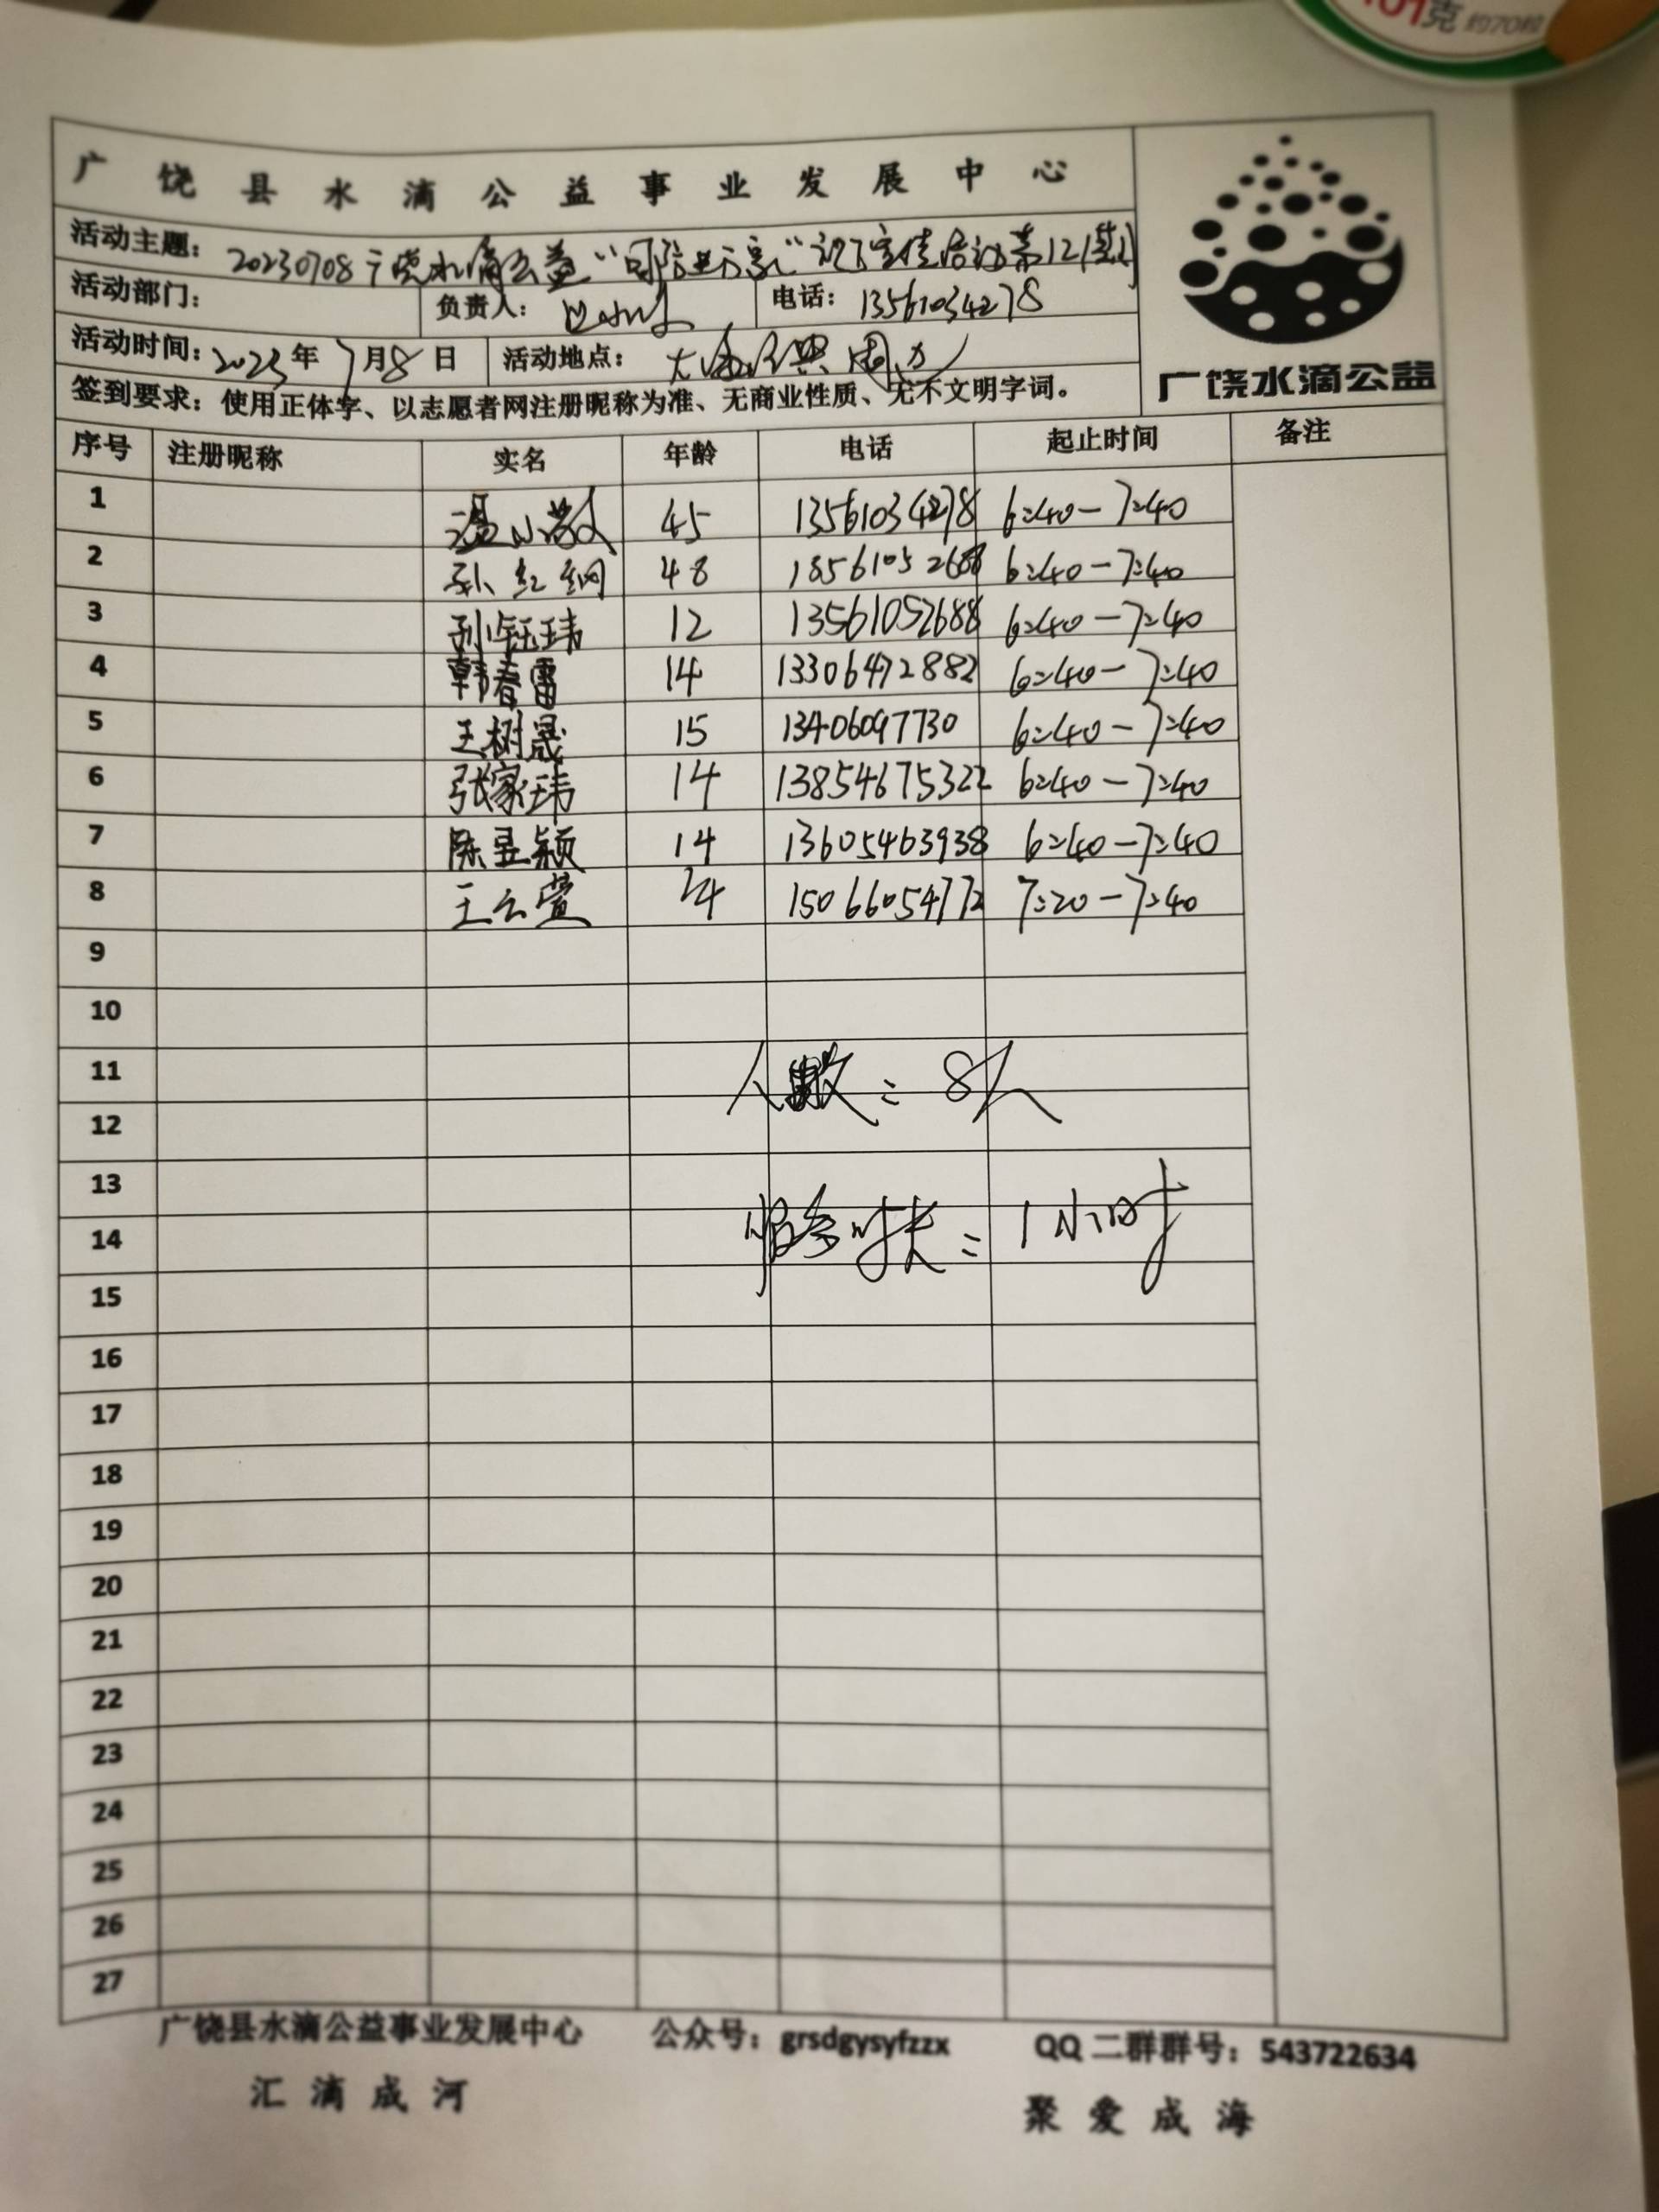 101克 约70粒
广饶县水滴公益事业发展中心
活动主题：20230708广饶水滴公益
活动部门： 负责人： 电话：13561034278
活动时间：2023年7月8日 活动地点：大
广饶水滴公益
签到要求：使用正体字、以志愿者网注册昵称为准、无商业性质、无不文明字词。
序号 注册昵称 实名 年龄 电话 起止时间 备注
1 温小 45 13561034278 6:40-7:40
2 孙红纲 48 18561052688 6:40-7:40
3 孙钰玮 12 13561052688 6:40-7:40
4 韩春雷 14 13306472882 6:40-7:40
5 王树晟 15 13406097730 6:40-7:40
6 张家玮 14 13854675322 6:40-7:40
7 陈昱颖 14 13605463938 6:40-7:40
8 王云萱 14 15066054772 7:20-7:40
9
10
11
人数：8人
12
13
服务时长：1小时
14
15
16
17
18
19
20
21
22
23
24
25
26
27
广饶县水滴公益事业发展中心 公众号：grsdgysyfzzx QQ二群群号：543722634
汇滴成河 聚爱成海